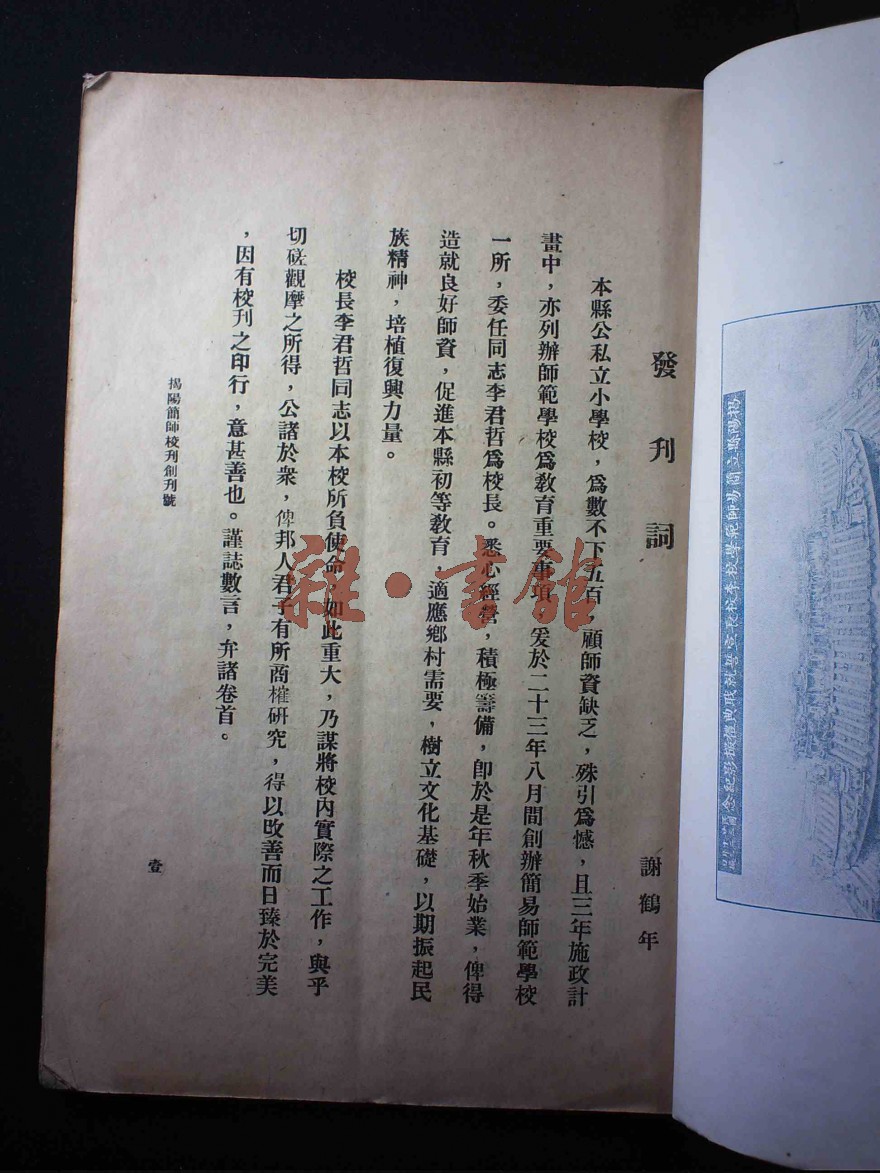 發刊詞
謝鶴年
本縣公私立小學校，爲數不下五百，顧師資缺乏，殊引爲憾，且三年施政計
畫中，亦列辦師範學校爲敎育重要事項，爰於二十三年八月間創辦簡易師範學校
一所，委任同志李君哲爲校長。悉心經營，積極籌備，卽於是年秋季始業，俾得
造就良好師資，促進本縣初等敎育，適應鄕村需要，樹立文化基礎，以期振起民
族精神，培植復興力量。
校長李君哲同志以本校所負使命，如此重大，乃謀將校內實際之工作，與乎
切磋觀摩之所得，公諸於衆，俾邦人君子有所商榷研究，得以改善而日臻於完美
，因有校刊之印行，意甚善也。謹誌數言，弁諸卷首。
揭陽簡師校刊創刊號
壹
雜·書館
揭陽縣立簡易師範學校李校長宣誓就職典禮攝影紀念